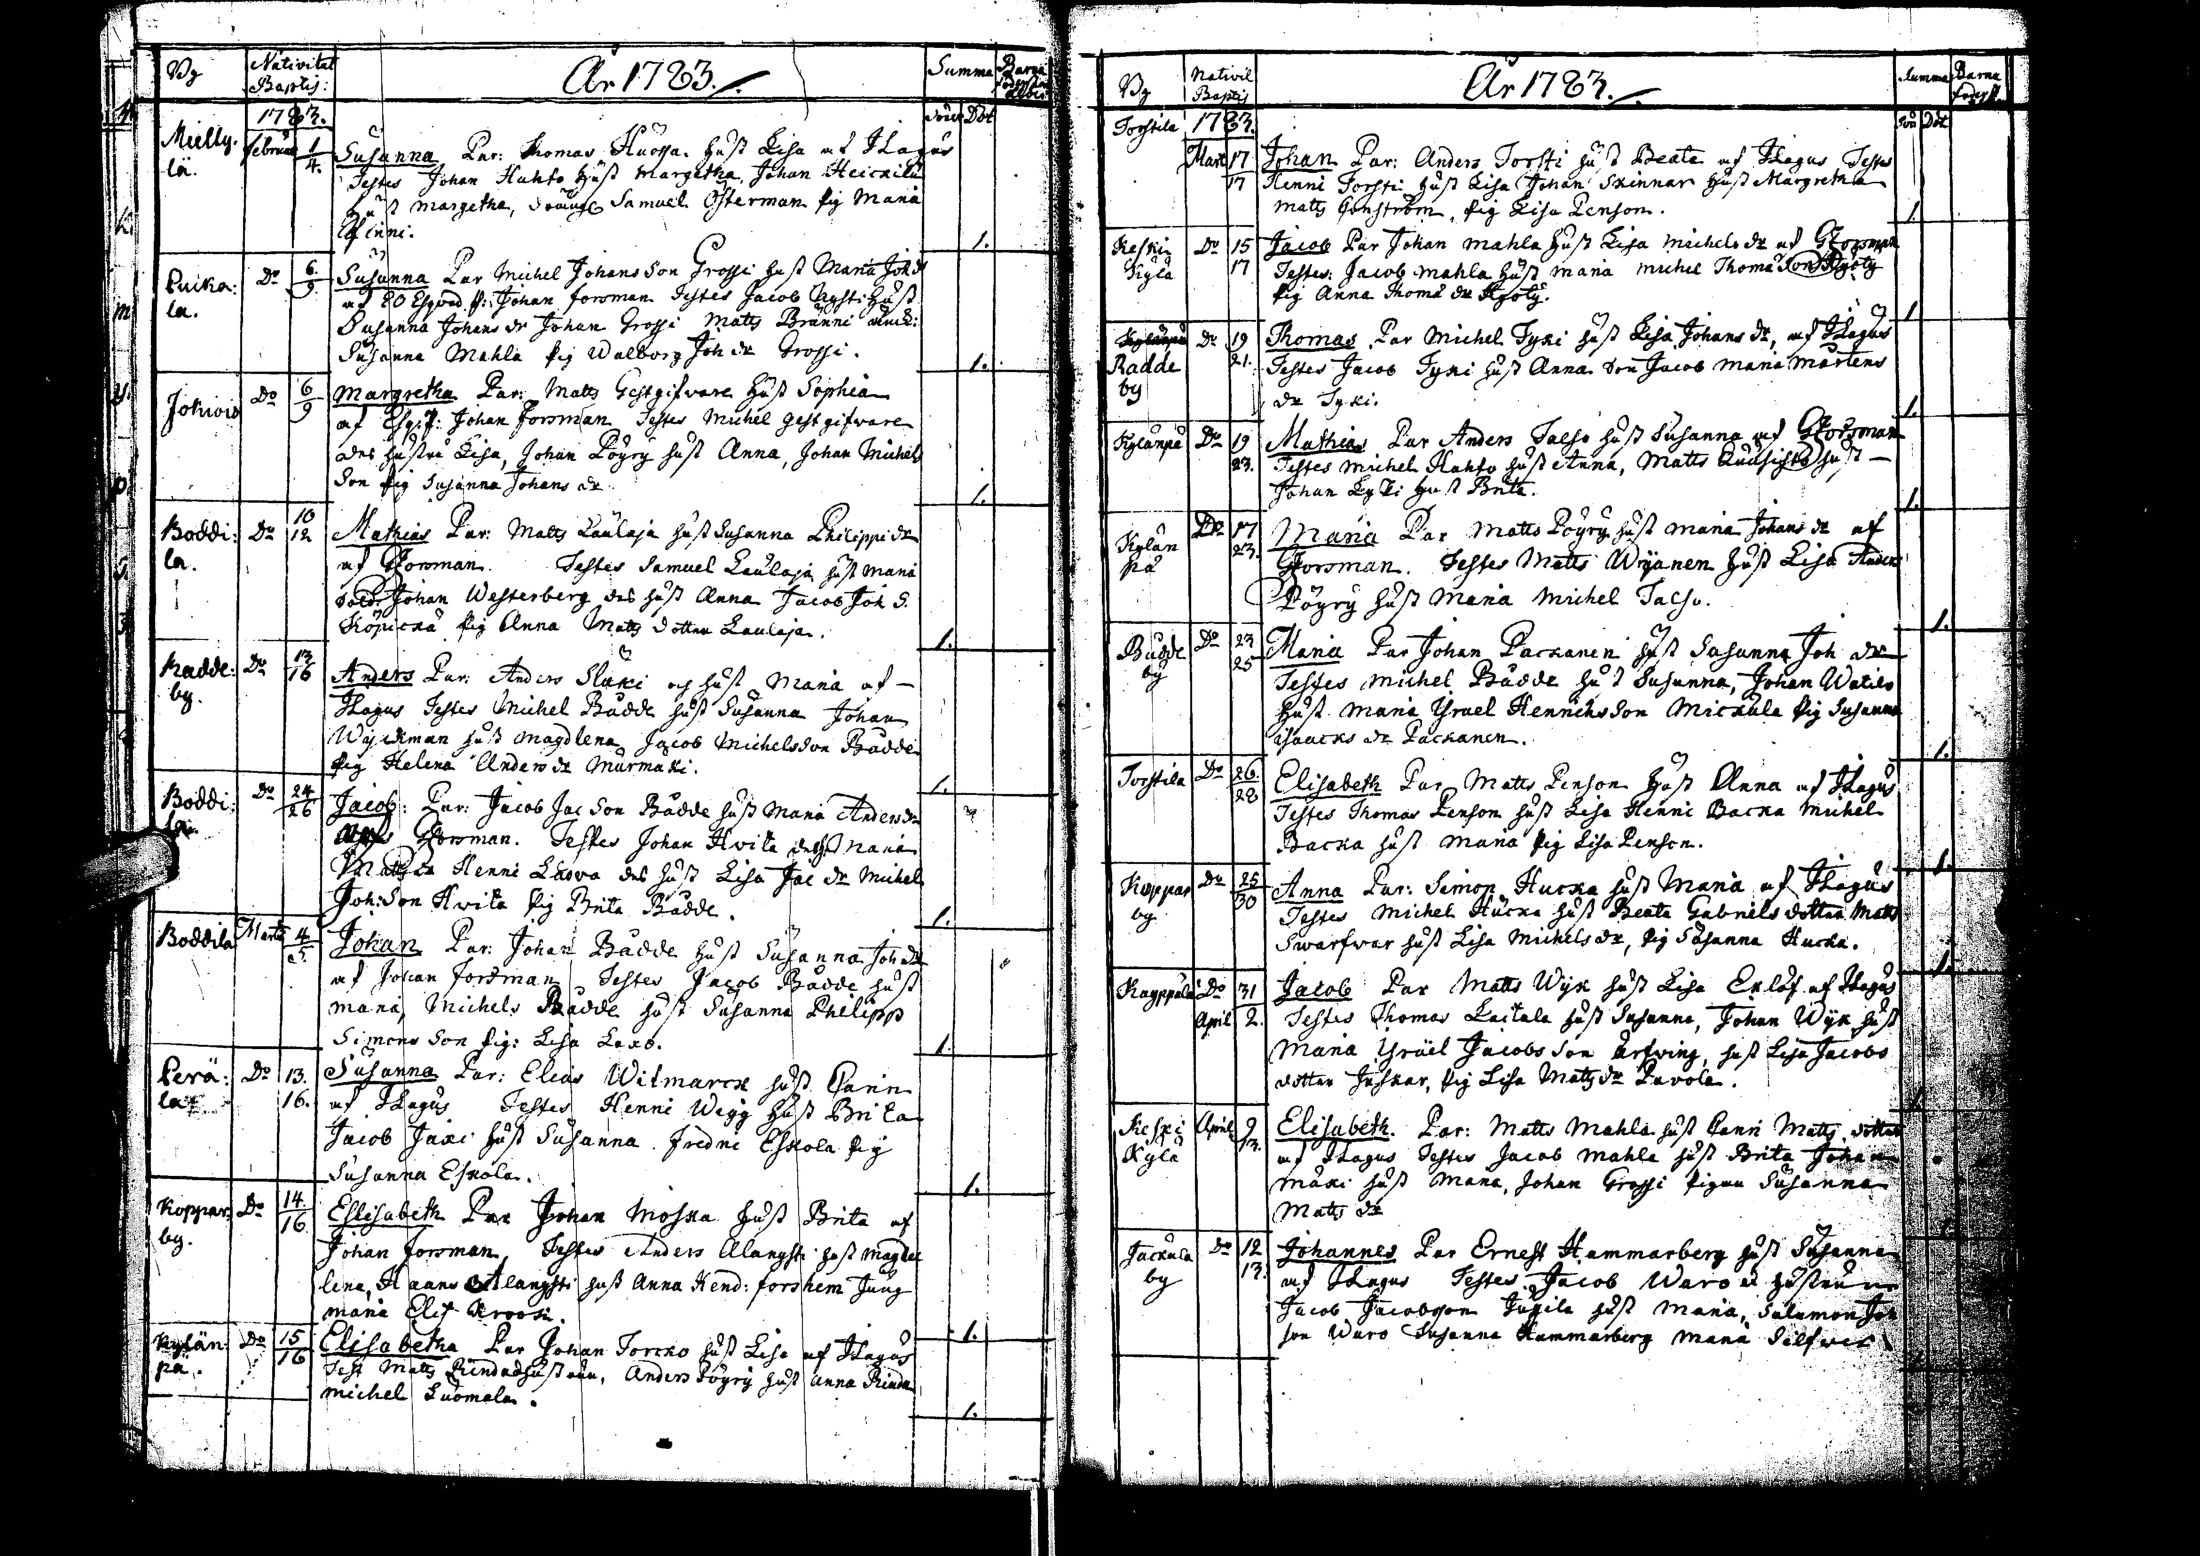 By Nativitet Baptis: År 1783. Summa Barna
1783. Söner Döt
Mielly:lä. februar 1/4. Susanna Par: Thomas Huossa hust Lisa af JLagus
Testes Johan Hahto Hust margetha, Johan Heickilä
Hust margetha, dräng Samuel Österman pig Maria
Finni. 1.
Puckala. Do 6/9 Susanna Par Michel Johans Son Grossi hust Maria Joh dr
af Johan forsman Testes Jacob hust
Susanna Johans dr Johan Grossi Matts Bränni
Susanna Mahla pig Walborg Joh dr Grossi. 1.
Jokivis Do 6/9 Margretha Par: Matts Gestgifvare Hust Sophia
af Johan Forsman Testes Michel gestgifvare
des hustru Lisa, Johan Pöyry hust Anna, Johan Michels
Son pig Susanna Johans dr 1.
Boddi:la. Do 10/12 Mathias Par: Matts Laulaja hust Susanna Philippi dr
af GForsman. Testes Samuel Laulaja hust maria
Johan Westerberg des hust Anna Jacob Joh S.
Köpickä pig Anna Matts dotter Laulaja. 1.
Radde:by. Do 13/16 Anders Par: Anders Sluki och hust Maria af
JLagus Testes Michel Bådde hust Susanna Johan
Wijckman hust magdlena Jacob Michelsson Bådde
pig Helena Anders dr Murmaki. 1.
Boddi:la. Do 24/26 Jacob: Par: Jacob Jac Son Bådde hust Maria Anders dr
GForsman. Testes Johan Hvita hust maria
Matts dr Henni Lassva des hust Lisa Jac dr Michel
Joh:Son Hvita pig Brita Bådde. 1.
Boddila Martz 4/5. Johan Par: Johan Bådde hust Susanna Joh dr
af Johan forsman Testes Jacob Bådde hust
maria, Michels Bådde hust Susanna Philipp
Simons Son pig: Lisa Laxo. 1.
Perä:la Do 13. 16. Susanna Par: Elias Witmarck hust Carin
af JLagus Testes Henni Wegg hust Brita
Jacob Jaxi hust Susanna. fredric Eskola pig
Susanna Eskola. 1.
Koppar by. Do 14./16 Ehlisabeth Par Johan Moska hust Brita af
Johan forsman, Testes Anders Alangsti hust magda
lena, Haans Alangsti hust Anna Hend: forshem Jung
maria Elis Kroook. 1.
Kylän:pä. Do 15/16 Elisabetha Par Johan Torcko hust Lisa af JLagus
Test Matts Rinda hustrun, Anders Pöyry hust anna Rinda
michel Luomala. 1.
By Nativit Baptis År 1783. Summa Barna
Torstila 1783. Sön Döt
Mart 17/17 Johan Par: Anders Torsti hust Beata af JLagus Testes
Henni Torsti hust Lisa Johan Skinnar hust Margretha
Matts Grnström, pig Lisa Penson. 1
Keski Kylä Do 15 17 Jacob Par Johan mahla hust Lisa michels dr af GForsman
Testes: Jacob mahla hust maria michel Thomä Son Kyöty
pig Anna Thomä dr Kyöty. 1
Radde by Do 19 21. Thomas Par Michel Tyxi hust Lisa Johans dr, af JLagus
Testes Jacob Tyxi hust Anna Son Jacob maria Mårtens
dr Tyxi. 1.
Kylänpä Do 19 23. Mathias Par Anders Talso hust Susanna af GForsman
Testes michel Hahto hust Anna, Matts hust
Johan Lytzi hust Brita. 1.
Kylän pä Do 17 23. Maria Par Matts Pöyry hust maria Johans dr af
GForsman. Testes Matts Wryänen hust Lisa Anders
Pöyry hust Maria Michel Talso. 1.
Budde by Do 23 25 Maria Par Johan Packanen hust Susanna Joh dr
Testes michel Bådde hust Susanna, Johan Watilo
hust maria Ysrael Henrichs Son Mickula pig Susanna
isaacks dr Packanen. 1.
Torstila Do 26. 28 Elisabeth Par Matts Penson hust Anna af JLagus
Testes Thomas Penson hust Lisa Henni Backa michel
Backa hust maria pig Lisa Penson. 1.
Koppar by Do 25 30 Anna Par: Simon Hucka hust Maria af JLagus
Testes michel Hucka hust Beata Gabriels dotter Matts
Swarfwar hust Lisa Michels dr, pig Susanna Hucka. 1.
Kauppila Do 31 April 2. Jacob Par Matts Wyk hust Lisa Erlds. af JLagus
Testes Thomas Laitala hust Susanna, Johan Wyk hust
Maria Ysräel Jacobs Son Arfwing, hust Lisa Jacobs
dotter Juskar, pig Lisa Matts dr Pavola. 1.
Keski Kylä April 9 13. Elisabeth. Par: Matts Mahla hust Carin Matts dotter
af JLagus Testes Jacob mahla hust Brita Johan
mäki hust maria, Johan Grossi pigan Susanna
Matts dr 1.
Jackula by Do 12 13. Johannes Par Ernest Hammarberg hust Susanna
af JLagus Testes Jacob Waro hustrun
Jacob Jacobsson Jupila hust maria, Salamon Joh
son Waro Susanna Hammarberg maria Silfver